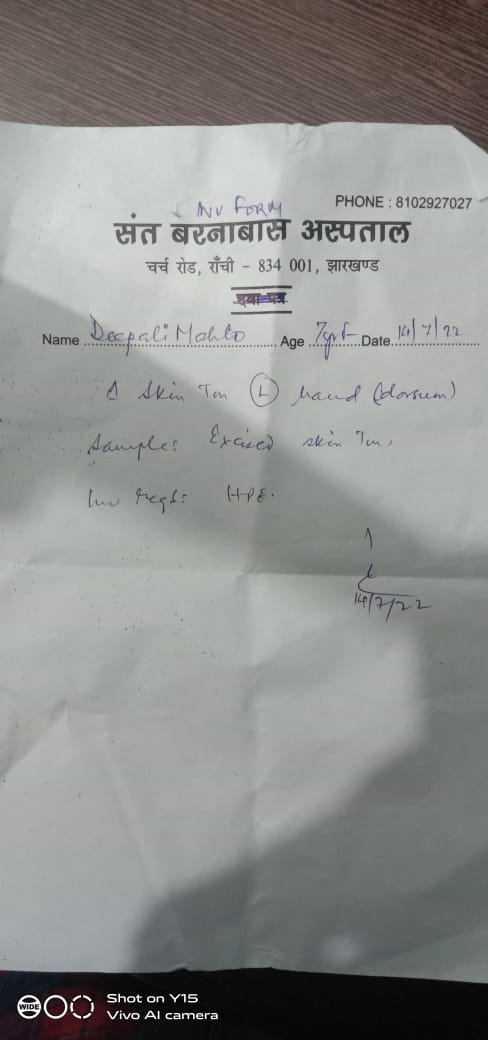 INV FORM
PHONE : 8102927027
संत बरनाबास अस्पताल
चर्च रोड, राँची - 834 001, झारखण्ड
दवा-पत्र
Name Deepali Mahto Age 7yr F Date 14/7/22
Δ Skin Tm (L) hand (dorsum)
Sample: Excised skin Tm.
Inv Reqd: HPE.
14/7/22
WIDE
Shot on Y15
Vivo AI camera